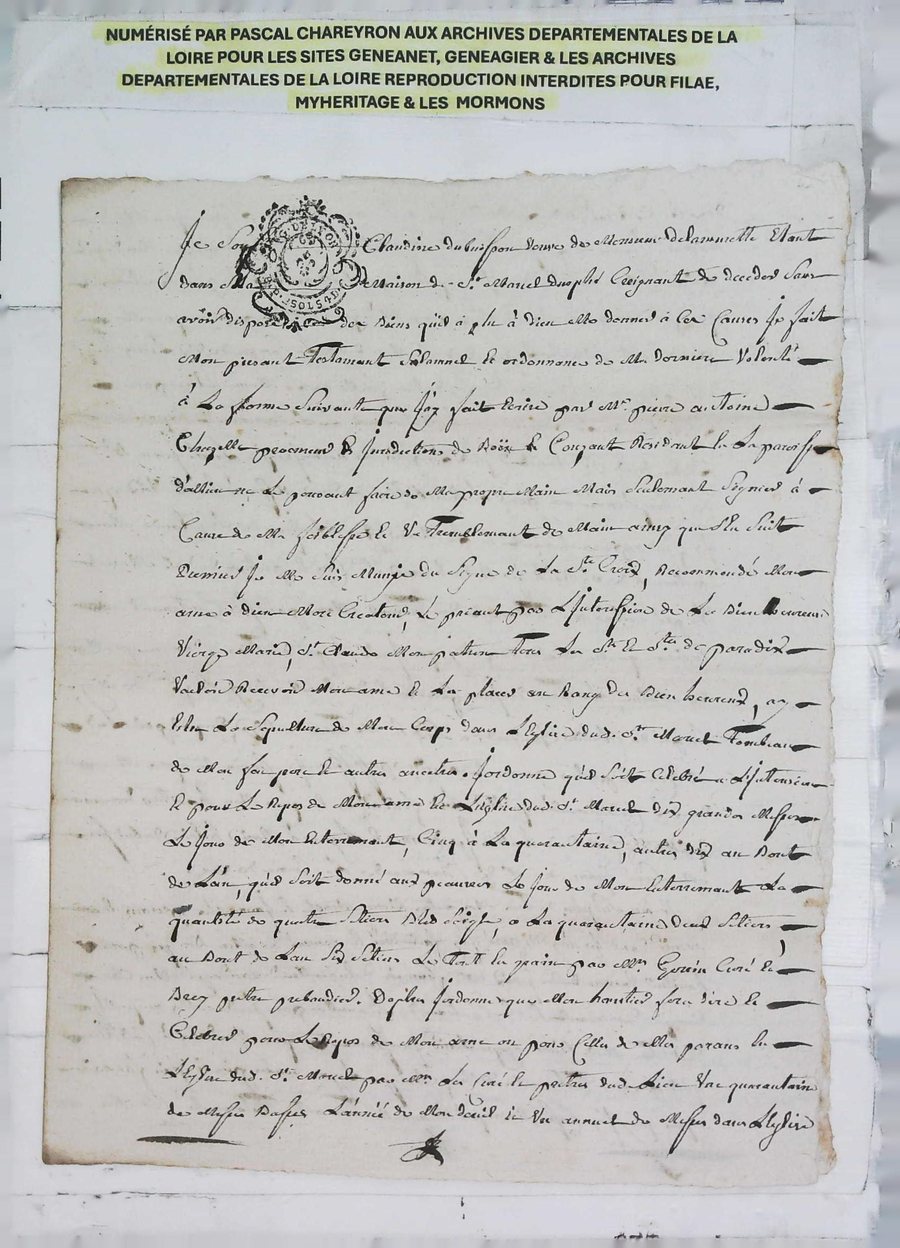 NUMÉRISÉ PAR PASCAL CHAREYRON AUX ARCHIVES DEPARTEMENTALES DE LA
LOIRE POUR LES SITES GENEANET, GENEAGIER & LES ARCHIVES
DEPARTEMENTALES DE LA LOIRE REPRODUCTION INTERDITES POUR FILAE,
MYHERITAGE & LES MORMONS
Je Sou Claudine dubuisson veuve de Monsieur Etant
dans Ma Maison de St. Marcel Creignant de deceder Sans
avoir disposé des Biens qu'il à plu à dieu Me donner à Ces Causes Je fait
Mon presant Testamant Solamnel et ordonnance de Ma derniere Volonté
à La forme Suivante que J'ay fait Ecrire par Mr. pierre antoine
procureur Jurisdictions de Boën Couzant Residant En La paroisse
ne Le pouvant faire de Ma propre Main Mais Seulemant Signier à
Cause de Ma foiblesse et Tremblemant de Main ainsy que S'En Suit
Premier Je Me Suis Munie du Signe de La Ste. Croix, Recommandé Mon
ame à dieu Mon Createur, Le priant par L'Intersession de La Bien heureuse
Vierge Marie, St. Claude Mon patron Tous Les Sts. Et Stes. de paradix
Vouloir Recevoir Mon ame et La placer au Rang des Bien heureux, ay
Elu La Sepulture de Mon Corps dans L'Eglise dud. St. Marcel Tombeau
de Mon feu pere et autres ancetres. J'ordonne qu'il Soit Celebré à
et pour Le Repos de Mon ame En L'Eglise dud. St. Marcel dix grandes Messes
Le Jour de Mon Enterremant, Cinq à La quarantaine, autres dix au Bout
de L'an, qu'il Soit donné aux peauvres Le Jour de Mon Enterremant La
quantité de quatre Setiers Bled Seigle, a La quarantaine deux Setiers,
au Bout de L'an Six Setiers Le Tout En pain par Mrs. Curé et
prebandier. De plus J'ordonne que Mon heritier fera dire et
Celebrer pour Le Repos de Mon ame ou pour Celles de Mes parans En
L'Eglise dud. St. Marcel par Mrs. Les Curé et pretres dud. Lieu Une quarantaine
de Messes Basses L'année de Mon deuil et Un annuel de Messes dans L'Eglise